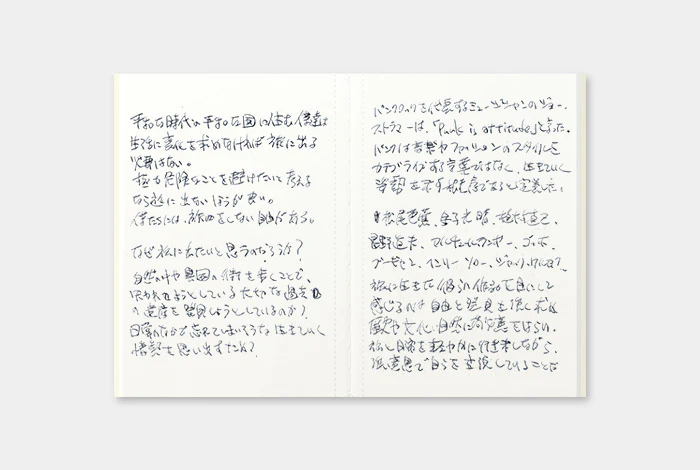 平和な時代の平和な国に住む僕達は
生活に変化を求めなければ旅に出る
必要はない。
極力危険なことを避けたいと考える
なら旅に出ないほうが良い。
僕たちには、旅をしない自由がある。
なぜ旅に出たいと思うのだろうか?
自然の中や異国の街を歩くことで、
失われようとしている大切な過去
の遺産を発見しようとしているのか?
日常のなかで忘れてしまいそうな生きていく
情熱を思い出すため?
パンクロックを代表するミュージシャンのジョー・
ストラマーは、「Punk is attitude」と言った。
パンクは音楽やファッションのスタイルを
カテゴライズする言葉ではなく、生きていく
姿勢を示す態度であると定義した。
松尾芭蕉、金子光晴、植村直己、
星野道夫、
ゴッホ、
旅に生きた彼らの作品を目にして
感じるのは自由と発見を強く求め
歴史や文化、自然に敬意をはらい、
旅と日常を軽やかに行き来しながら、
強い意思で自らを表現していることだ